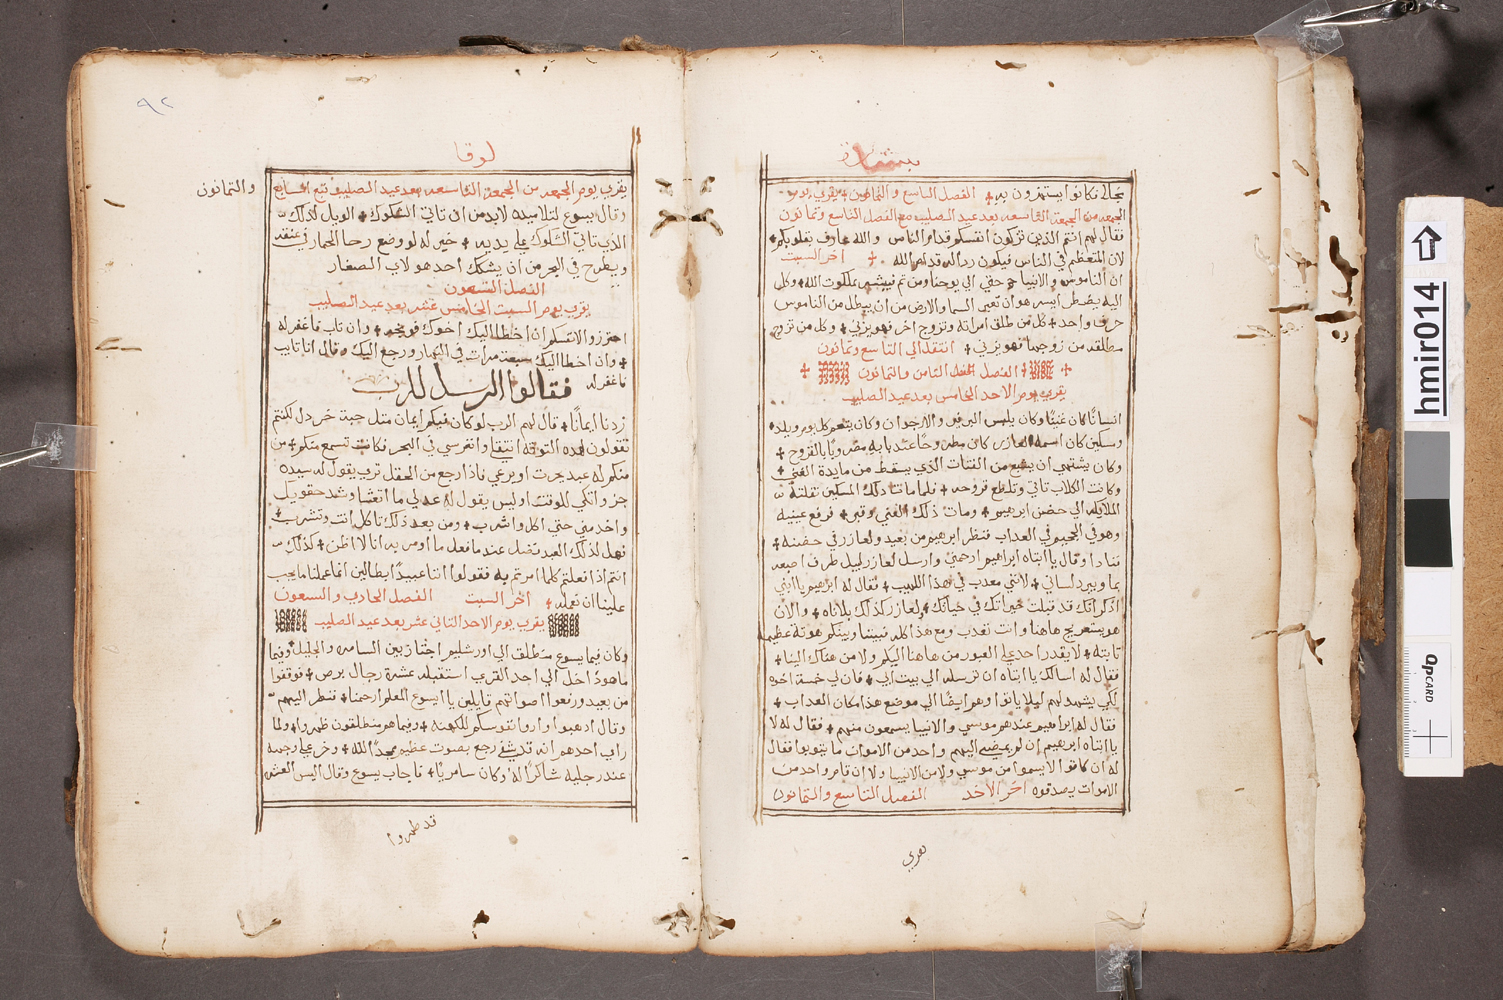 بشارة
بحالى فكانوا يستهزون به الفصل التاسع والثمانون يقرى يوم
الجمعه من الجمعة التاسعه بعد عيد الصليب مع الفصل التاسع وثمانون
فقال لهم انتم الذين تزكون انفسكم قدام الناس والله عارف بقلوبكم
لان المتعظم في الناس فيكون ردا له قدام الله اخر السبت
ان الناموس والانبيا حتى الي يوحنا ومن ثم فيبشر بملكوت الله وكل
اليه يضطر ايسر هو ان تعبر السما والارض من ان يبطل من الناموس
حرف واحد كل من طلق امراته وتزوج اخرى فهو يزني وكل من تزوج
مطلقه من زوجها فهو يزني انتقد الي التاسع وثمانون
الفصل الثامن والثمانون
يقرى يوم الاحد الخامس بعد عيد الصليب
انسانًا كان غنيًا وكان يلبس البرفير والارجوان وكان يتنعم كل يوم ويلد
ومسكين كان اسمه العازر كان مطروحًا عند بابه مضروبًا بالقروح
وكان يشتهي ان يشبع من الفتات الذي يسقط من مايدة الغني
وكانت الكلاب تاتي وتلحس قروحه فلما مات ذلك المسكين نقلته
الملايكه الي حضن ابرهيم ومات ذلك الغني وقبر فرفع عينيه
وهو في الجحيم في العذاب فنظر ابرهيم من بعيد ولعازر في حضنه
فنادا وقال يا ابتاه ابراهيم ارحمني وارسل لعازر ليبل طرف اصبعه
بما ويبرد لساني لانني معذب في هذا اللهيب فقال له ابرهيم يا ابني
اذكر انك قد قبلت خيراتك في حياتك ولعازر كذلك بلاياه والان
هو يستريح هاهنا وانت تعذب ومع هذا كله فبيننا وبينكم هوتة عظيمه
ثابته لا يقدر احد علي العبور من هاهنا اليكم ولا من هناك الينا
فقال له اسالك يا ابتاه ان ترسله الي بيت ابي فان لي خمسة اخوه
لكي يشهد لهم ليلا ياتوا وهم ايضًا الي موضع هذا مكان العذاب
فقال له ابراهيم عندهم موسي والانبيا يسمعون منهم فقال له لا
يا ابتاه ابرهيم ان لم يمضي اليهم واحد من الاموات ما يتوبوا فقال
له ان كانوا لا يسمعوا من موسي ولا من الانبيا ولا ان قام واحد من
الاموات يصدقوه اخر الاحد الفصل التاسع والثمانون
يقرى
لوقا
٩٢
والثمانون
يقرى يوم الجمعه من الجمعة التاسعه بعد عيد الصليب تبع السابع
وقال يسوع لتلاميذه لابد من ان تاتي الشكوك الويل لذلك
الذي تاتي الشكوك علي يديه خير له لو وضع رحا الحمار في عنقه
ويطرح في البحر من ان يشكك احد هولاي الصغار
الفصل التسعون
يقرى يوم السبت الخامس عشر بعد عيد الصليب
احترزوا لانفسكم ان اخطا اليك اخوك فوبخه وان تاب فاغفر له
وان اخطا اليك سبعة مرات في النهار ورجع اليك وقال انا تايب
فاغفر له فقالوا الرسل للرب
زدنا ايمانًا قال لهم الرب لو كان فيكم ايمان مثل حبة خردل لكنتم
تقولون لهذه التوتة انتقلي وانغرسي في البحر فكانت تسمع منكم من
منكم له عبد يحرث او يرعي فاذا رجع من الحقل تري يقول له سيده
جز واتكي للوقت اوليس يقول له عد لي ما اتعشا وشد حقويك
واخدمني حتي اكل واشرب ومن بعد ذلك تاكل انت وتشرب
فهل لذلك العبد فضل عندما فعل ما اومر به انا لا اظن كذلك
انتم اذا فعلتم كلما امرتم به فقولوا اننا عبيدًا بطالين انما عملنا ما يجب
علينا ان نعمله اخر السبت الفصل الحادي والتسعون
يقرى يوم الاحد الثاني عشر بعد عيد الصليب
وكان فيما يسوع منطلق الي اورشليم اجتاز بين السامره والجليل وفيما
ما هو داخل الي احد القري استقبله عشرة رجال برص فوقفوا
من بعيد ورفعوا اصواتهم قايلين يا ايسوع المعلم ارحمنا فنظر اليهم
وقال اذهبوا واروا نفوسكم للكهنه وفيما هم منطلقون طهروا ولما
راى احدهم انه قد شفي رجع بصوت عظيم مجدًا الله وخر علي وجهه
عند رجليه شاكرًا له وكان سامريًا فاجاب يسوع وقال اليس العشره
قد طهروا
hmir014
QPCARD